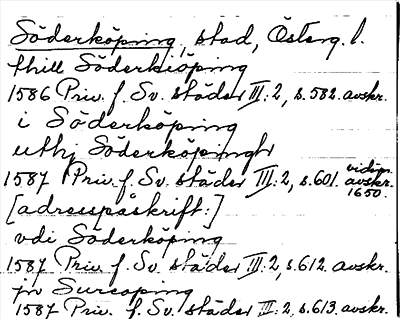 Söderköping stad, Österg. l.
thill Söderkiöping
1586 Priv. f. Sv. städer III:2, s. 582. avskr.
i Söderköping
uthj Söderköpingh
1587 Priv. f. Sv. städer III:2, s. 601. vidim. avskr. 1650.
[adresspåskrift:]
vdi Söderköping
1587 Priv. f. Sv. städer III:2, s. 612. avskr.
Surcoping
1587 Priv. f. Sv. städer III:2, s. 613. avskr.